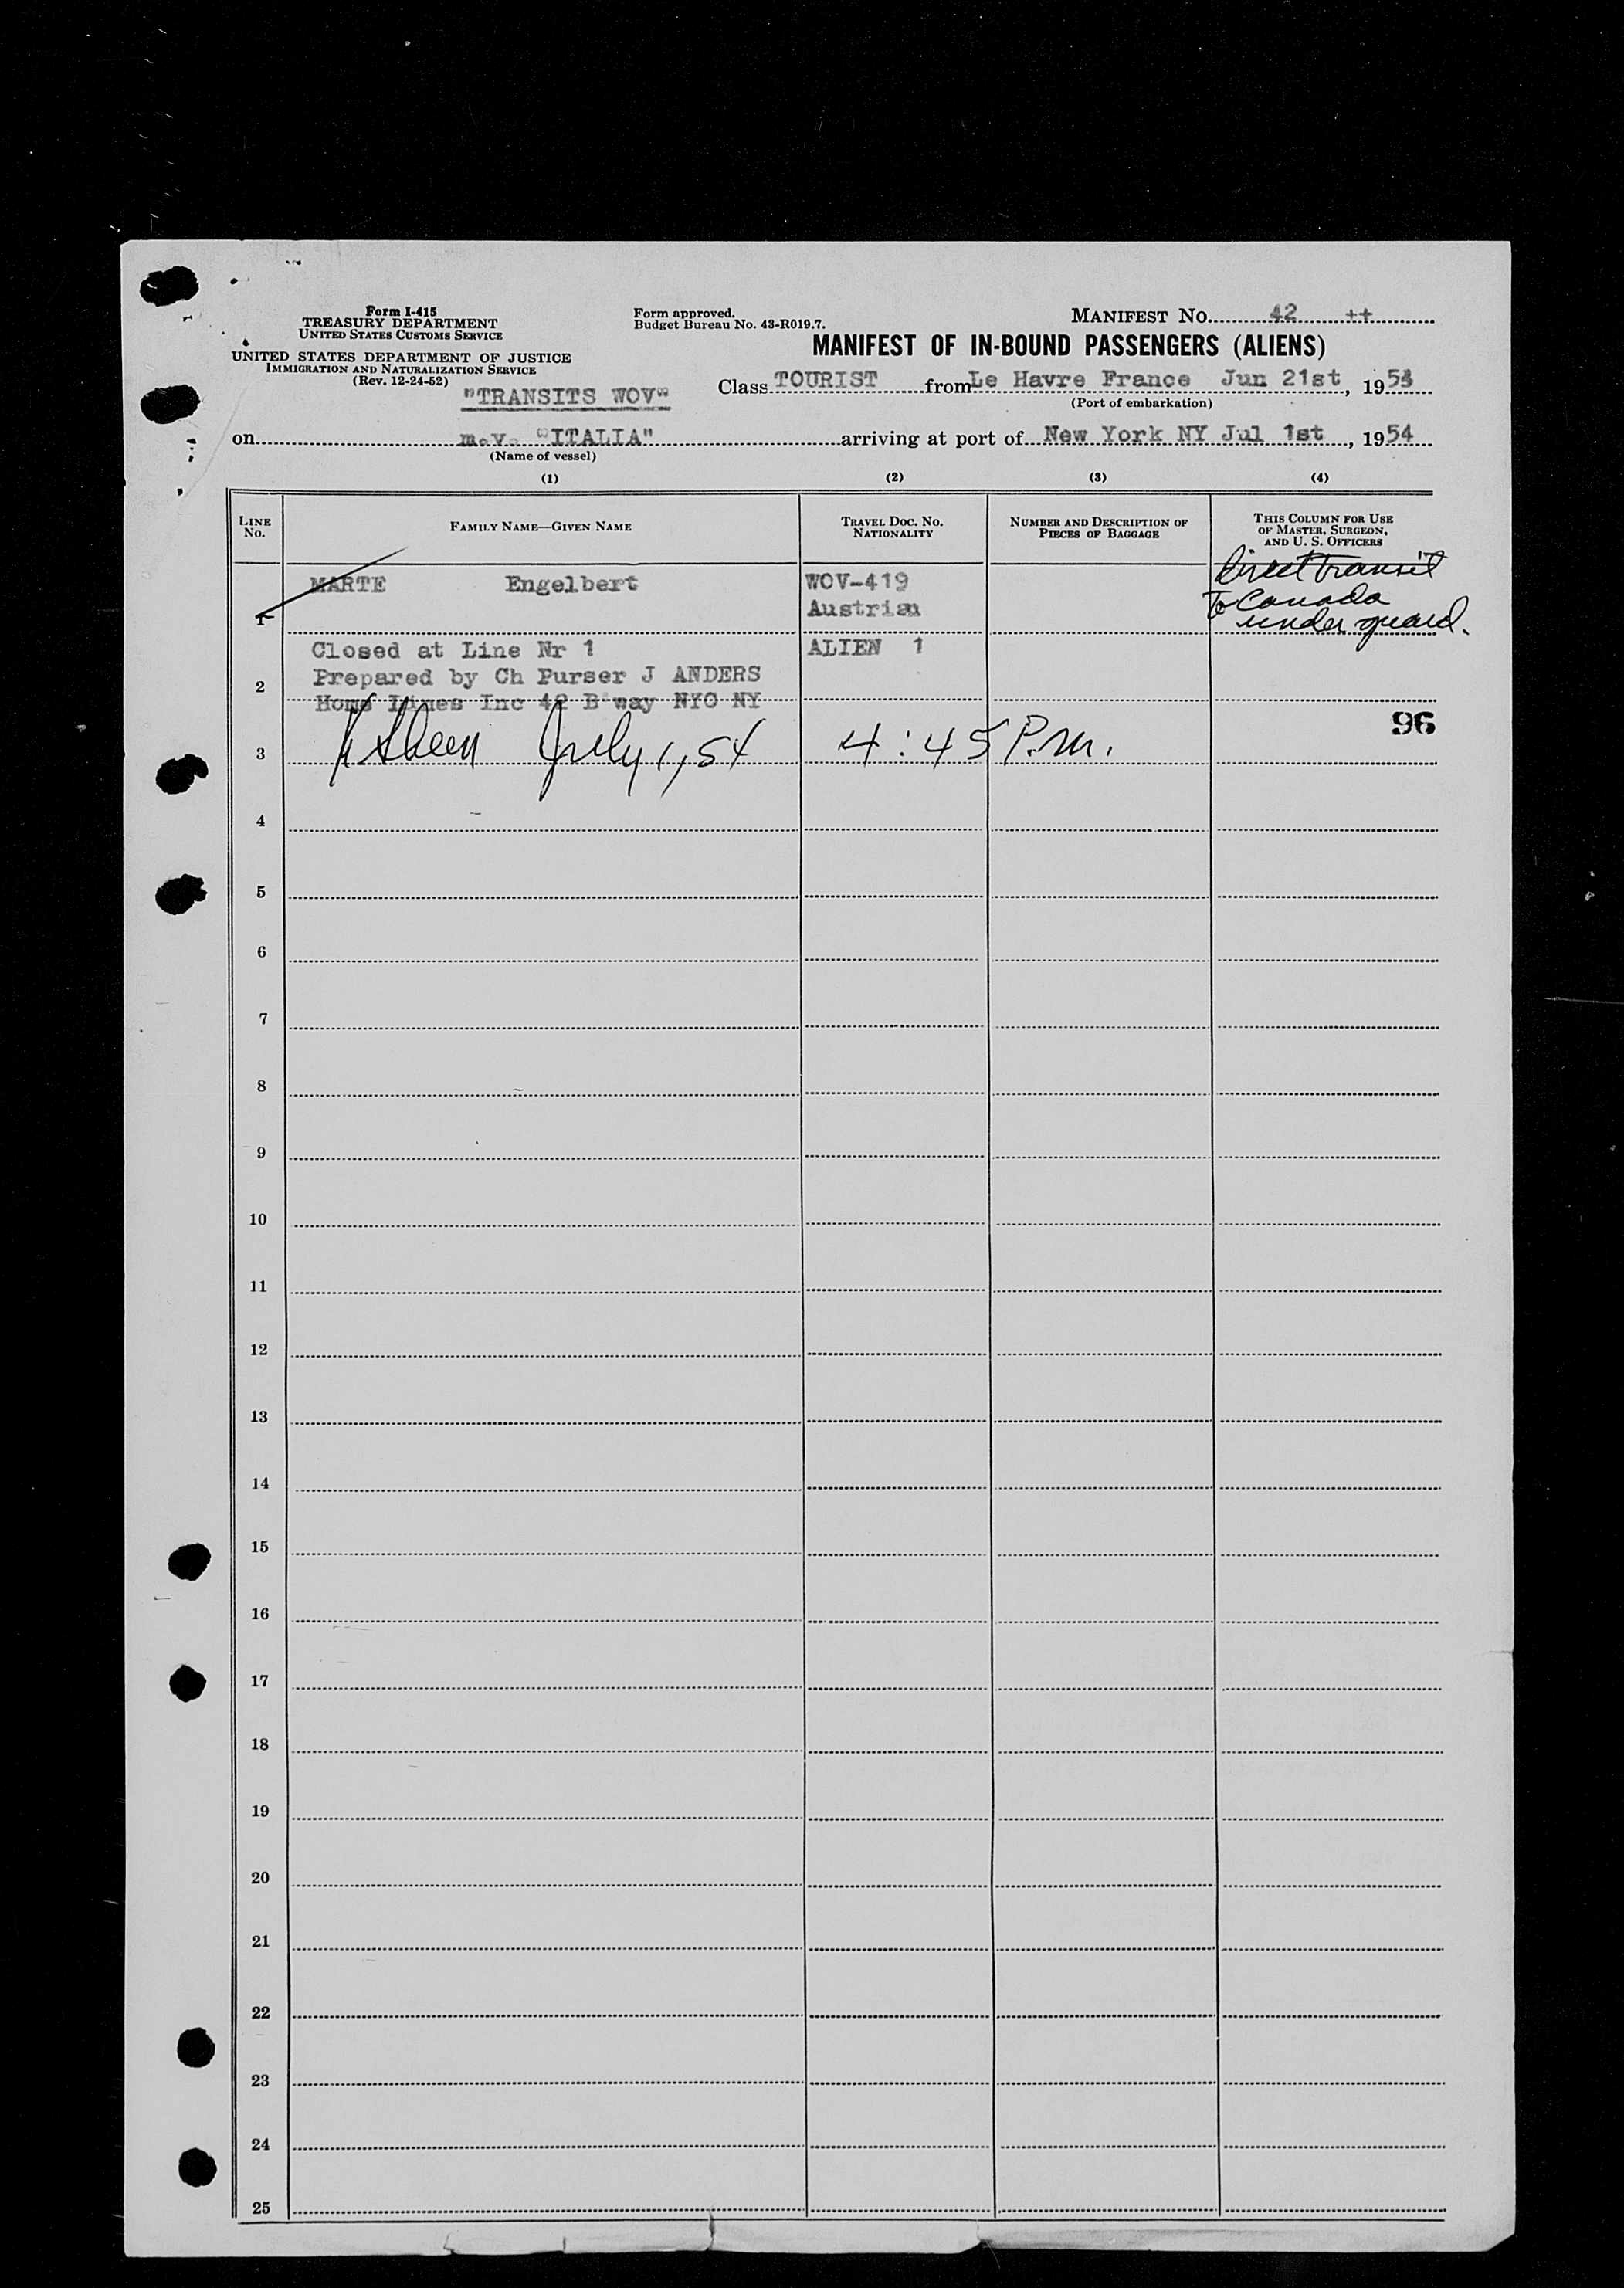 Form I-415
TREASURY DEPARTMENT
UNITED STATES CUSTOMS SERVICE
UNITED STATES DEPARTMENT OF JUSTICE
IMMIGRATION AND NATURALIZATION SERVICE
(Rev. 12-24-52)
Form approved.
Budget Bureau No. 43-R019.7.
MANIFEST NO. 42 ++
MANIFEST OF IN-BOUND PASSENGERS (ALIENS)
"TRANSITS WOV"
Class TOURIST from Le Havre France Jun 21st, 1954
(Port of embarkation)
on m.v. "ITALIA" arriving at port of New York NY Jul 1st, 1954
(Name of vessel)
(1) (2) (3) (4)
LINE NO.
FAMILY NAME—GIVEN NAME
TRAVEL DOC. NO. NATIONALITY
NUMBER AND DESCRIPTION OF PIECES OF BAGGAGE
THIS COLUMN FOR USE OF MASTER, SURGEON, AND U. S. OFFICERS
1 MARTE Engelbert WOV-419 Direct transit
Austrian To Canada
under guard.
Closed at Line Nr 1 ALIEN 1
2 Prepared by Ch Purser J ANDERS
Home Lines Inc 42 B'way NYC NY
96
3 July 1, 54 4:45 P.M.
4
5
6
7
8
9
10
11
12
13
14
15
16
17
18
19
20
21
22
23
24
25